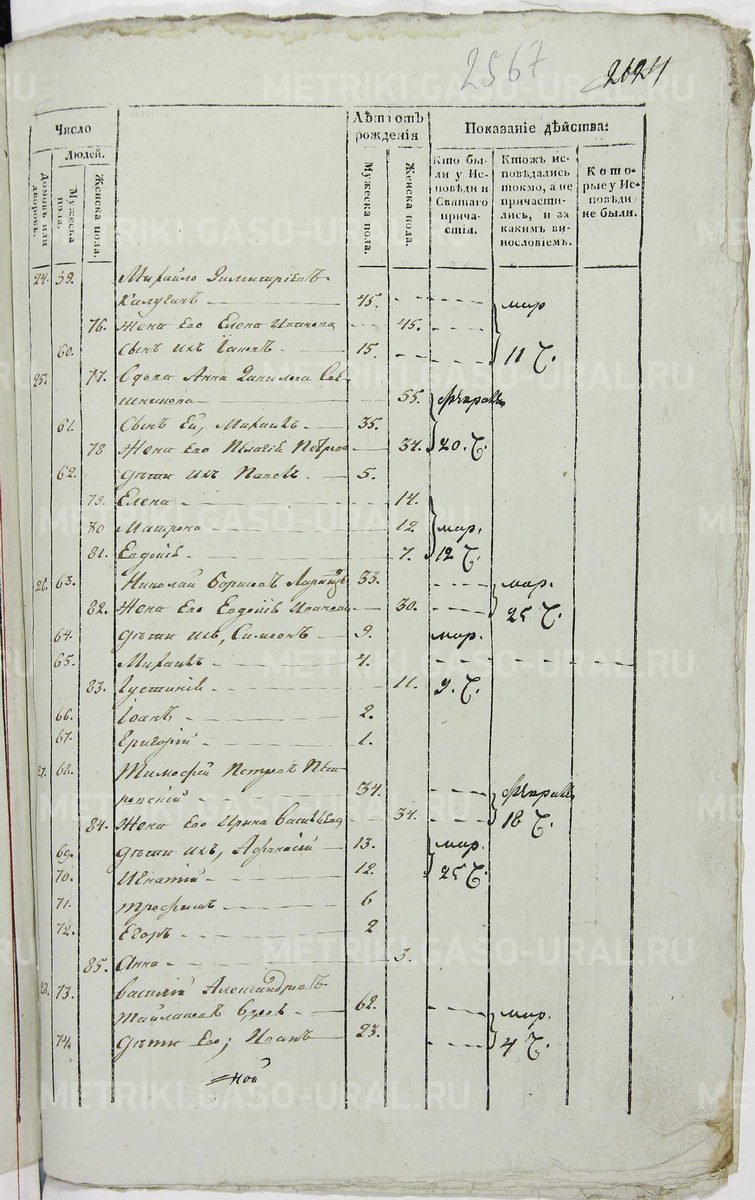 2567
Число
Людей.
Домовъ или дворовъ.
Мужеска пола.
Женска пола.
Лѣтъ отъ рожденія
Мужеска пола.
Женска пола.
Показаніе дѣйства:
Кто бы-
ли у Ис-
повѣди и
Святаго
прича-
стія.
Ктожъ ис-
повѣдались
токмо, а не
причасти-
лись, и за
какимъ ви-
нословіемъ.
Кото-
рые у Ис-
повѣди
не были.
24. 59. Михайло
Калугинъ 45. мар
76. Жена Его Елена Иванова 45.
60. Сынъ ихъ Іаковъ 15. 11 Ч.
25. 77. Вдова Анна Данилова
55. Февраль
61. Сынъ Ея, Михаилъ 35.
78 Жена Его Пелагія Петрова 34. 20. Ч.
62. Дѣти ихъ Павелъ 5.
79. Елена 14.
80 Матрона 12. мар.
81. Евдокія 7. 12 Ч.
26. 63. Николай Борисовъ 33. мар.
82. Жена Его Евдокія Иванова 30. 25 Ч.
64. Дѣти ихъ, Симеонъ 9. мар.
65. Михаилъ 4.
83. Іустинія 11. 9. Ч.
66. Іоанъ 2.
67. Григорій 1.
27. 68. Тимофей Петровъ
34. Февраль
84. Жена Его Ирина Васильева 34. 18 Ч.
69. Дѣти ихъ, Афанасій 13. мар.
70. Игнатій 12. 25 Ч.
71. Трофимъ 6
72. Егоръ 2
85. Анна 3.
28. 73. Василій Александровъ
62. мар.
74. Дѣти Его; Иванъ 23. 4 Ч.
METRIKI.GASO-URAL.RU